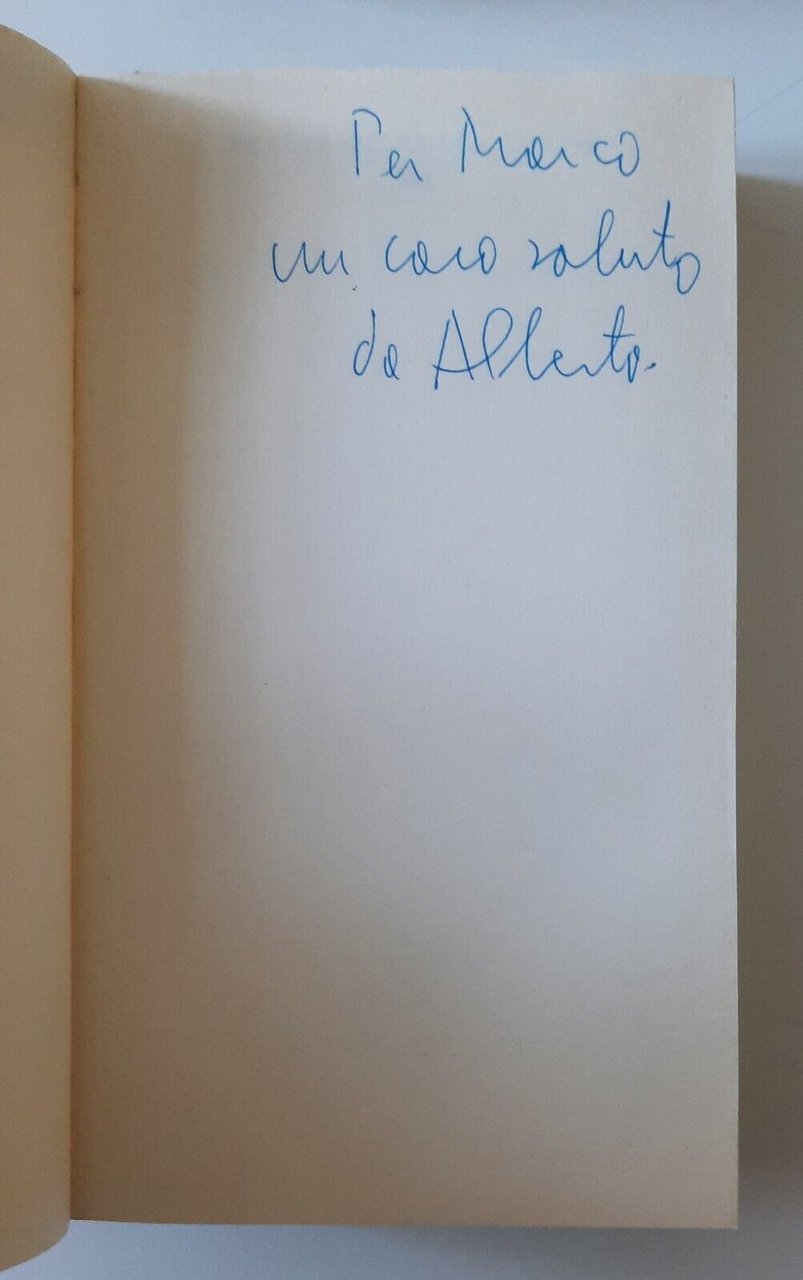 Per Marco
un caro saluto
da Alberto.